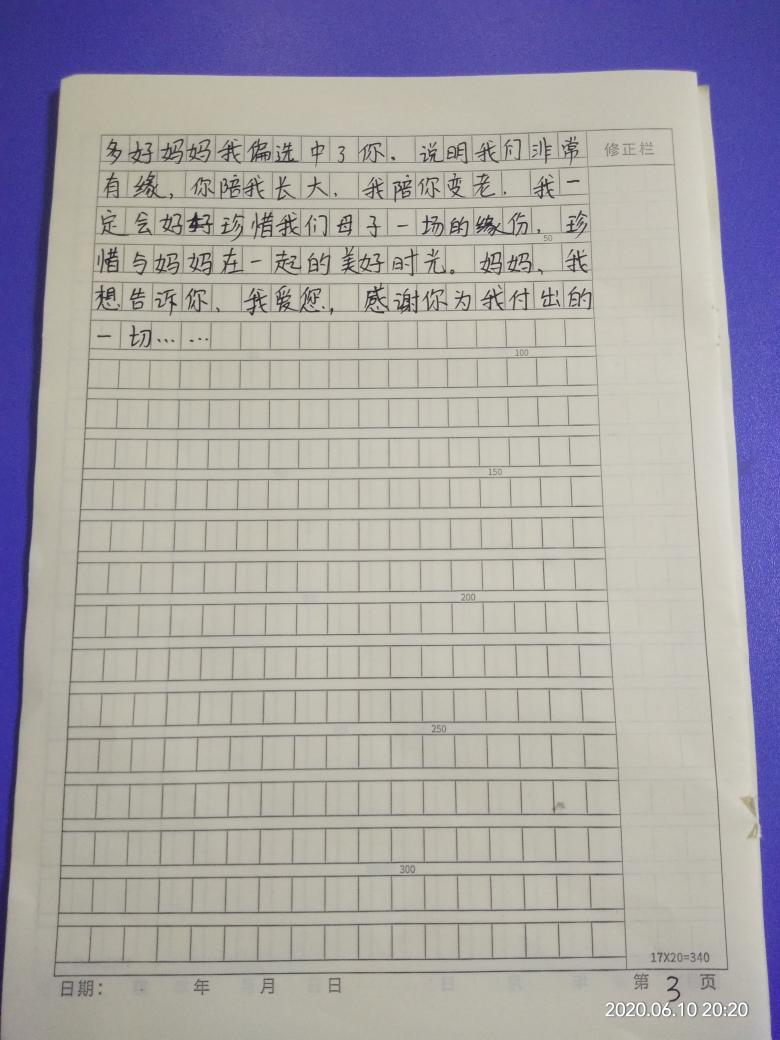 多好妈妈我偏选中了你.说明我们非常
修正栏
有缘,你陪我长大.我陪你变老.我一
定会好好珍惜我们母子一场的缘份.珍
50
惜与妈妈在一起的美好时光。妈妈、我
想告诉你、我爱您,感谢你为我付出的
一切……
100
150
200
250
300
17X20=340
日期: 年 月 日
第3页
2020.06.10 20:20